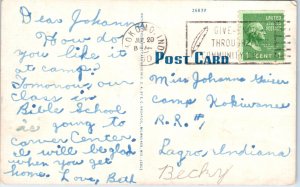 26877
Dear Johana
How do
you like it
at camp?
Tomorrow our
class in
Bible School
is going to
Carver Center.
I will be glad
when you get
home. Love, Beth
IND.
JUL 20
GIVE
THROUGH
COMMUNITY
1 CENT 1
POST CARD
Miss Johana
Camp Kokiwanee
R.R. #1
Lagro, Indiana
Becky